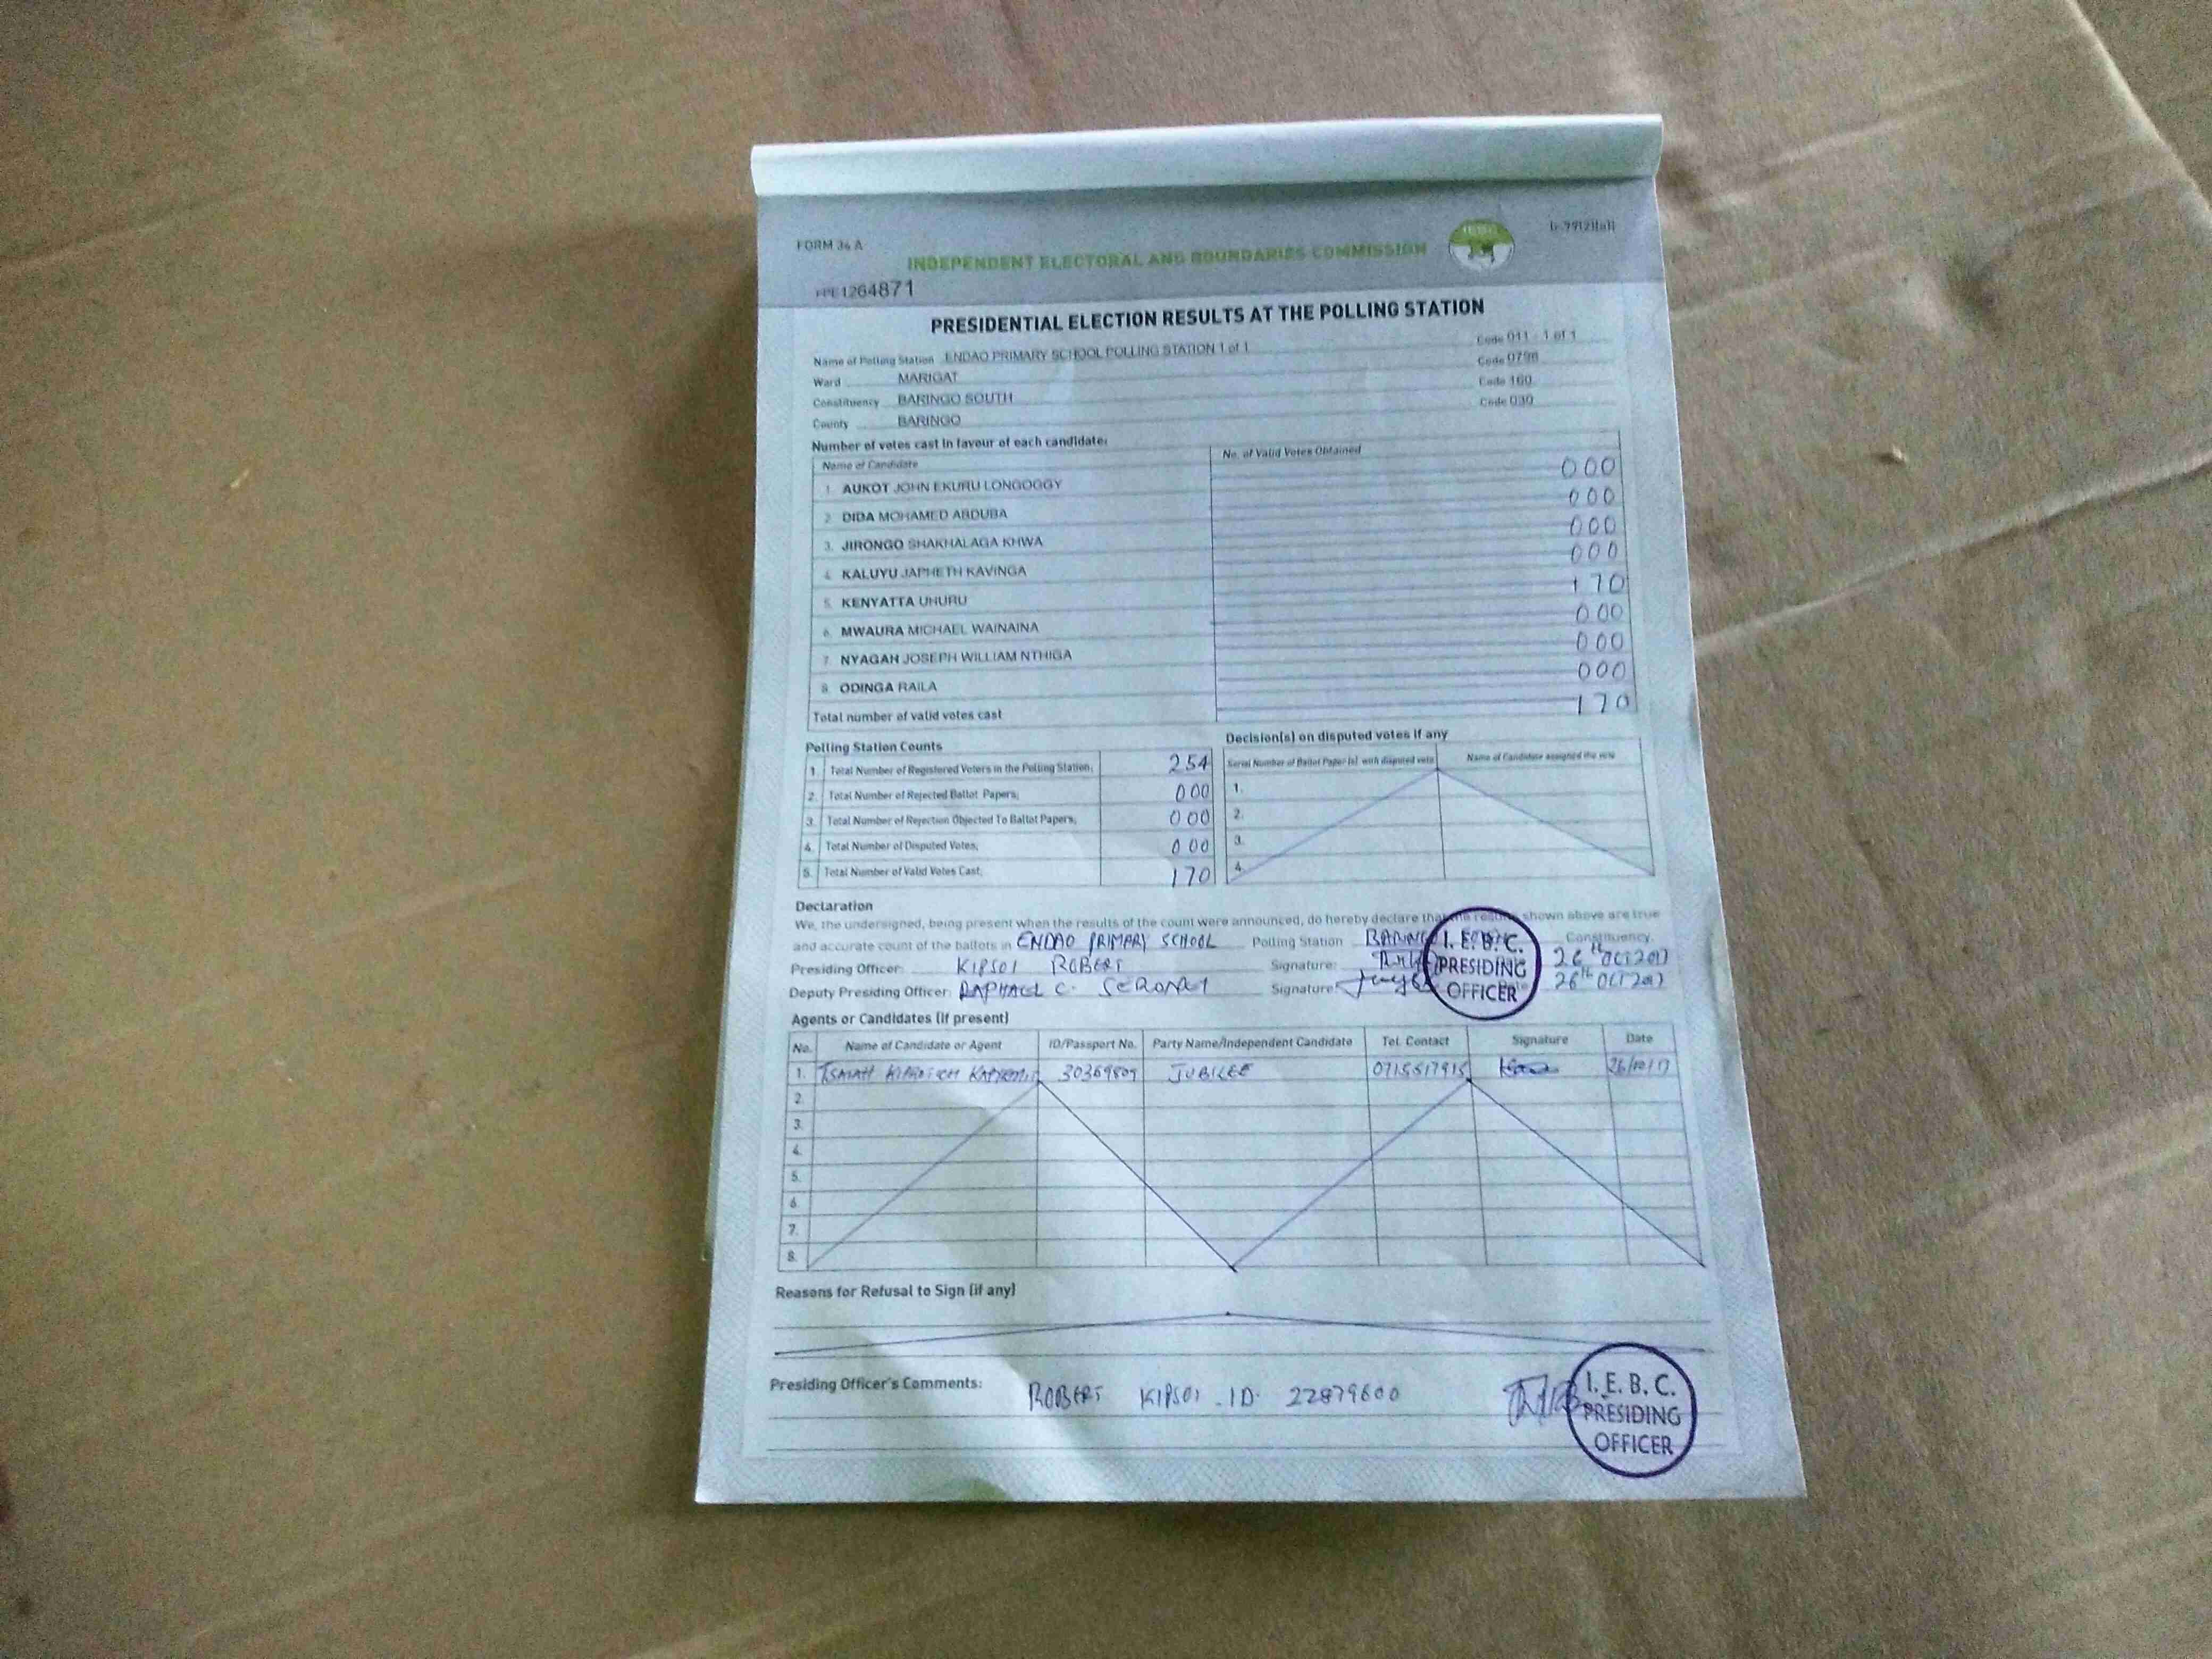 FORM 34 A
INDEPENDENT ELECTORAL AND BOUNDARIES COMMISSION
1264871
PRESIDENTIAL ELECTION RESULTS AT THE POLLING STATION
Name of Polling Station ENDAO PRIMARY SCHOOL POLLING STATION 1 of 1 Code 011 - 1 of 1
Ward MARIGAT Code 0798
Constituency BARINGO SOUTH Code 160
County BARINGO Code 030
Number of votes cast in favour of each candidate:
Name of Candidate No. of Valid Votes Obtained
1. AUKOT JOHN EKURU LONGOGGY 000
2. DIDA MOHAMED ABDUBA 000
3. JIRONGO SHAKHALAGA KHWA 000
4. KALUYU JAPHETH KAVINGA 000
5. KENYATTA UHURU 170
6. MWAURA MICHAEL WAINAINA 000
7. NYAGAH JOSEPH WILLIAM NTHIGA 000
8. ODINGA RAILA 000
Total number of valid votes cast 170
Polling Station Counts
1. Total Number of Registered Voters in the Polling Station; 254
2. Total Number of Rejected Ballot Papers; 000
3. Total Number of Rejection Objected To Ballot Papers; 000
4. Total Number of Disputed Votes; 000
5. Total Number of Valid Votes Cast; 170
Decision(s) on disputed votes if any
Serial Number of Ballot Paper (s) with disputed vote Name of Candidate assigned the vote
1.
2.
3.
4.
Declaration
We, the undersigned, being present when the results of the count were announced, do hereby declare that the results shown above are true
and accurate count of the ballots in ENDAO PRIMARY SCHOOL Polling Station Constituency.
Presiding Officer: KIPSOI ROBERT Signature: 26th OCT 2017
Deputy Presiding Officer: RAPHAEL C. Signature: 26th OCT 2017
I. E. B. C.
PRESIDING
OFFICER
Agents or Candidates (if present)
No. Name of Candidate or Agent ID/Passport No. Party Name/Independent Candidate Tel. Contact Signature Date
1. 30369809 JUBILEE 0715517915 26/10/17
2.
3.
4.
5.
6.
7.
8.
Reasons for Refusal to Sign (if any)
Presiding Officer's Comments: ROBERT KIPSOI - ID. 22879600
I. E. B. C.
PRESIDING
OFFICER